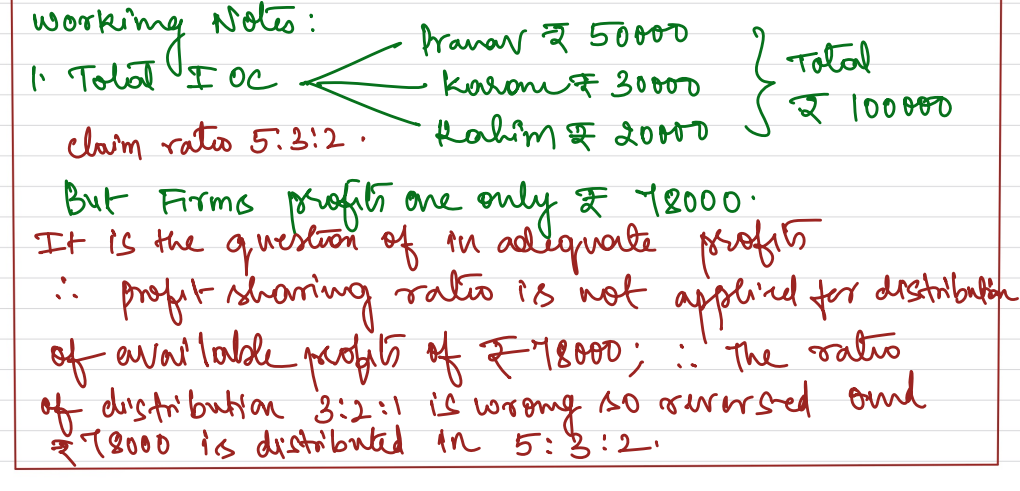 Working Notes:
1. Total IOC Pranav ₹ 50000
Karan ₹ 30000
Rahim ₹ 20000
Total
₹ 100000
claim ratio 5:3:2.
But Firms profits are only ₹ 78000.
It is the question of in adequate profits
∴ profit sharing ratio is not applied for distribution
of available profits of ₹ 78000; ∴ The ratio
of distribution 3:2:1 is wrong so reversed and
₹ 78000 is distributed in 5:3:2.